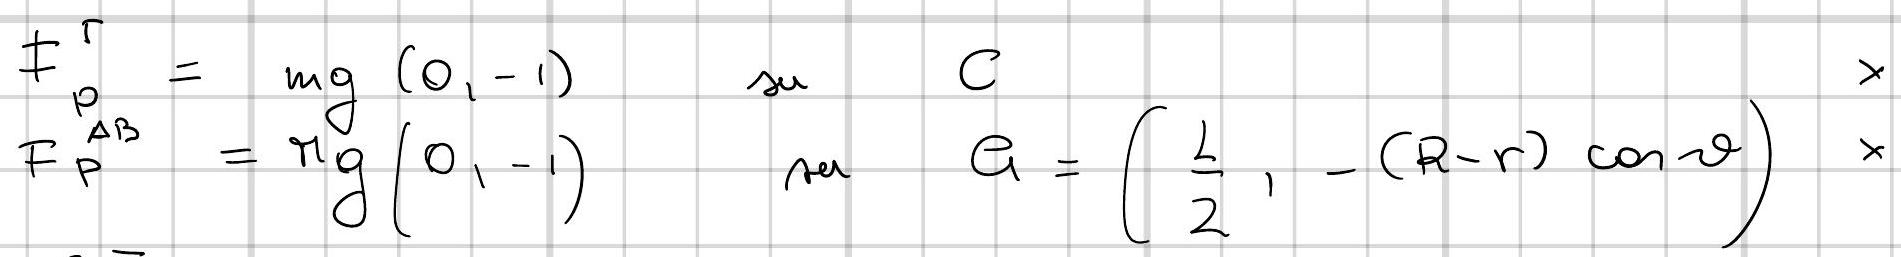 F_p^Γ = mg (0, -1) su C x
F_p^AB = Mg (0, -1) su G = (L/2, -(R-r) cos ϑ) x